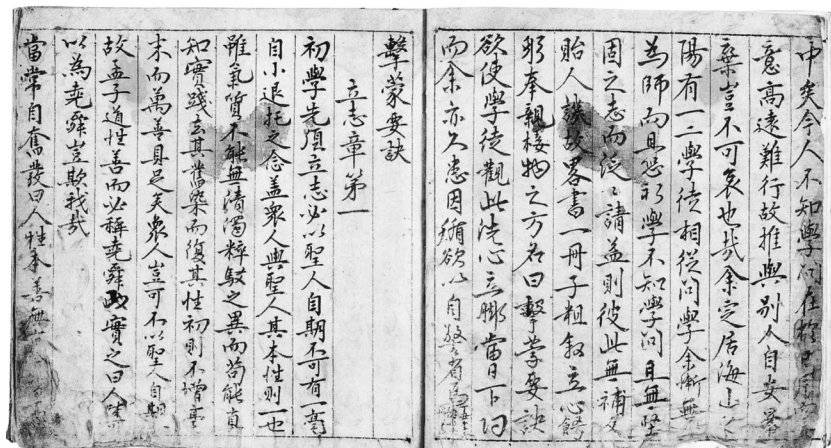 中矣今人不知學問在於日用
意高遠難行故推與別人自安暴
棄豈不可哀也哉余定居海山之
陽有一二學徒相從問學余慚無
為師而且恐初學不知學問且無堅
固之志而泛泛請益則彼此無補反
貽人譏故略書一冊子粗敘立心飭
躬奉親接物之方名曰擊蒙要訣
欲使學徒觀此洗心立腳當日下功
而余亦久患因循欲以自警省焉
擊蒙要訣
立志章第一
初學先須立志必以聖人自期不可有一毫
自小退托之念盖衆人與聖人其本性則一也
雖氣質不能無清濁粹駁之異而苟能真
知實踐去其舊染而復其性初則不增毫
末而萬善具足矣衆人豈可不以聖人自期
故孟子道性善而必稱堯舜以實之曰人皆
以為堯舜豈欺我哉
當常自奮發曰人性本善無